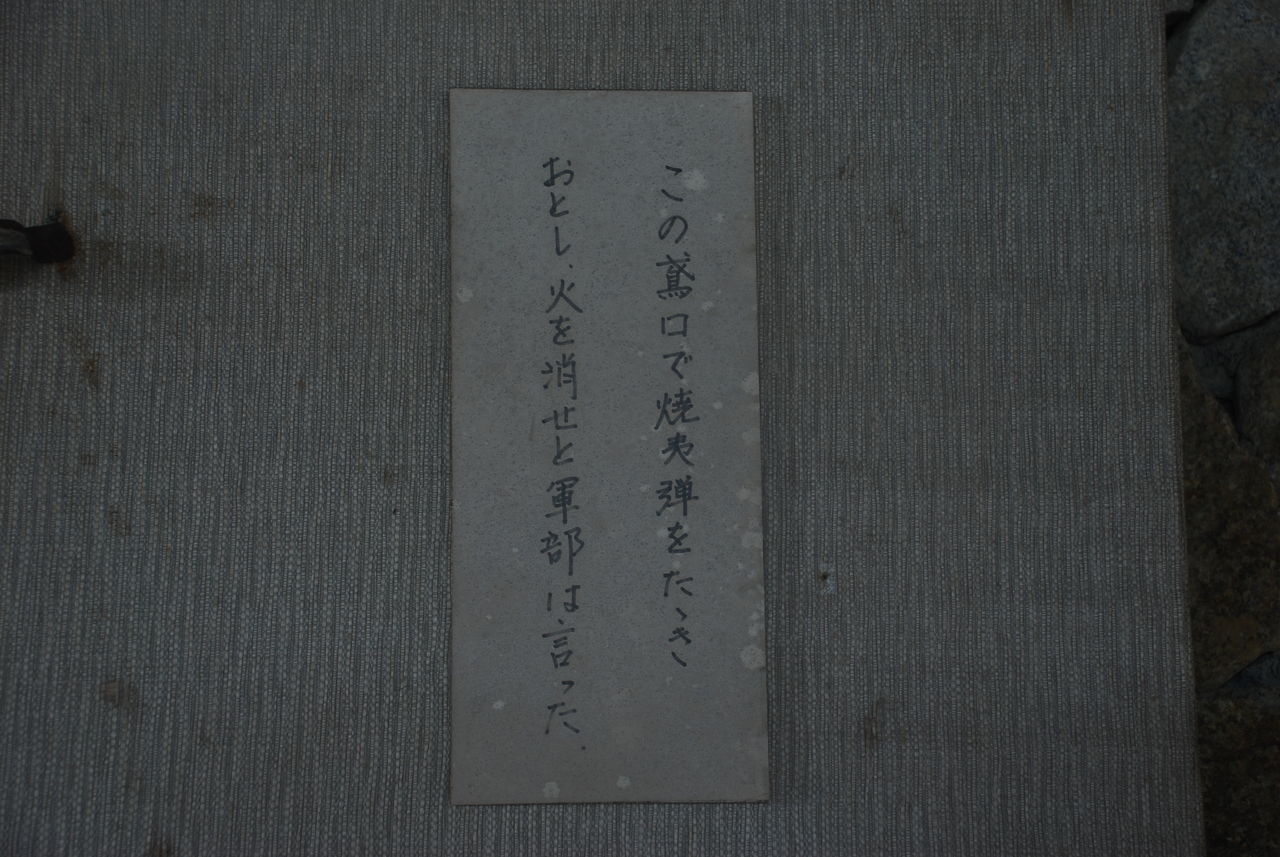 この鳶口で焼夷弾をたゝき
おとし、火を消せと軍部は言った.